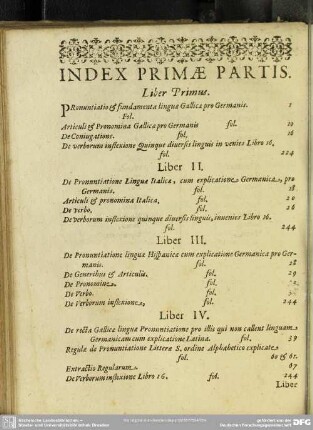 INDEX PRIMÆ PARTIS.
Liber Primus.
PRonuntiatio & fundamenta linguæ Gallicæ pro Germanis. 1
fol.
Articuli & Pronomina Gallica pro Germanis fol. 10
De Coniugatione. fol. 16
De verborum inflexione Quinque diversis linguis in venies Libro 16.
fol. 224
Liber II.
De Pronuntiatione Linguæ Italicæ, cum explicatione Germanica, pro
Germanis. fol. 18
Articuli & pronomina Italica, fol. 20
De verbo, fol. 26
De verborum inflexione quinque diversis linguis, invenies Libro 16.
fol. 244
Liber III.
De Pronuntiatione linguæ Hispanicæ cum explicatione Germanica pro Ger-
manis. fol. 28
De Generibus & Articulis. fol. 29
De Pronomine. fol.
De Verbo. fol.
De Verborum inflexione, fol. 244
Liber IV.
De recta Gallicæ linguæ Pronuntiatione pro illis qui non callent linguam
Germanicam cum explicatione Latina. fol. 39
Regula de Pronuntiatione Litteræ S. ordine Alphabetico explicata
fol. 60 & 61.
Extractio Regularum. 67
De Verborum inflexione Libro 16. fol. 244
Liber